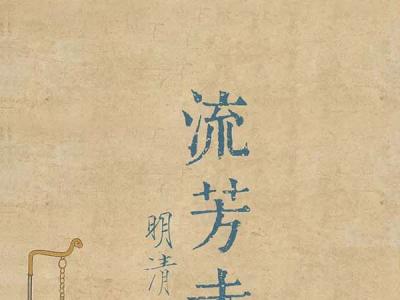 流芳
明清